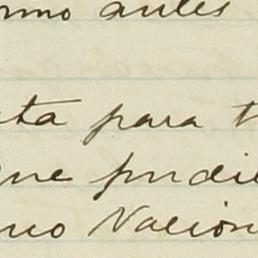 mo antes
ta para t
ue pudie
no Nacion